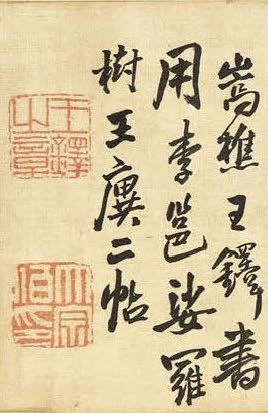 嵩樵王鐸書
用李邕娑羅
樹王廙二帖
王鐸之章
大宗伯印